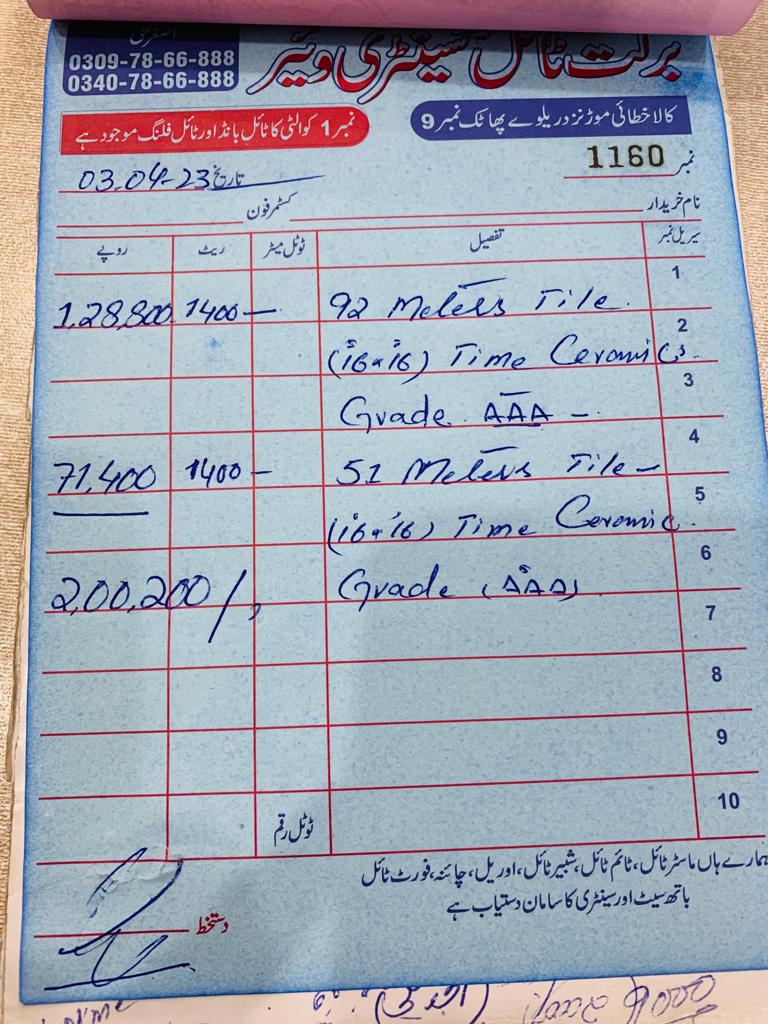 برکت ٹائل سینٹری ویئر
0309-78-66-888
0340-78-66-888
کالا خطائی موڑ نزد ریلوے پھاٹک نمبر 9
نمبر 1 کوالٹی کا ٹائل بانڈ اور ٹائل فلنگ موجود ہے
نمبر 1160
تاریخ 03-04-23
نام خریدار کسٹمر فون
سیریل نمبر تفصیل ٹوٹل میٹر ریٹ روپے
1 92 Meters Tile. 1400 — 1,28,800
2 (16"x16") Time Ceramics.
3 Grade AAA —
4 51 Meters Tile — 1400 — 71,400
5 (16"x16") Time Ceramic.
6 Grade (AAA) 2,00,200/
7
8
9
10
ٹوٹل رقم
ہمارے ہاں ماسٹر ٹائل، ٹائم ٹائل، شبیر ٹائل، اوریل، چائنہ، فورٹ ٹائل
باتھ سیٹ اور سینٹری کا سامان دستیاب ہے
دستخط